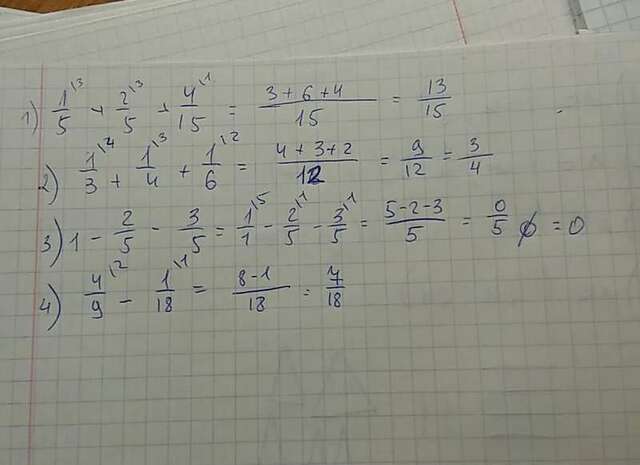 1) 1/5 \3 + 2/5 \3 + 4/15 \1 = (3+6+4)/15 = 13/15
2) 1/3 \4 + 1/4 \3 + 1/6 \2 = (4+3+2)/12 = 9/12 = 3/4
3) 1 - 2/5 - 3/5 = 1/1 \5 - 2/5 \1 - 3/5 \1 = (5-2-3)/5 = 0/5 = 0
4) 4/9 \2 - 1/18 \1 = (8-1)/18 = 7/18